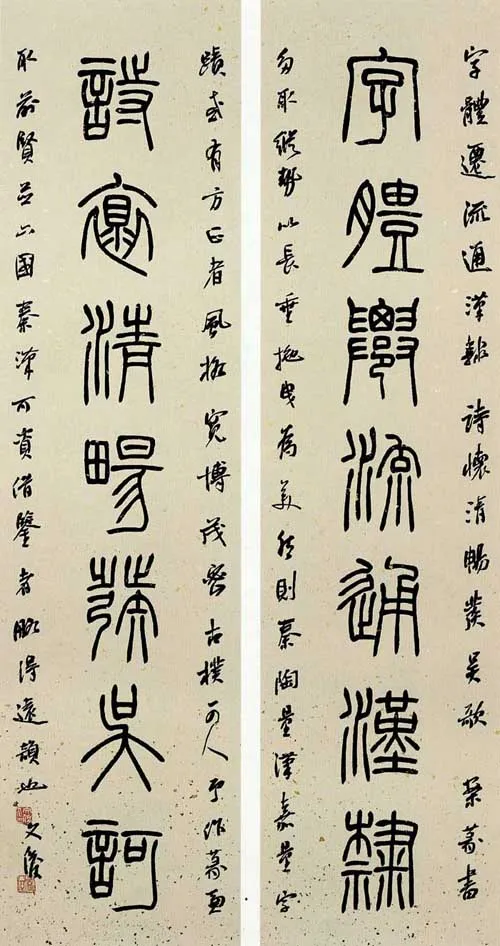 字體遷流通漢隸 詩懷清暢發吳歌 書
字體遷流通漢隸
多取縱勢以長垂拖曳為美然則秦陶量漢嘉量字
蹟或有方正者風格寬博茂密古樸可人予作
詩懷清暢發吳歌
取前賢並六國秦漢可資借鑒者 得遠韻也 文俊